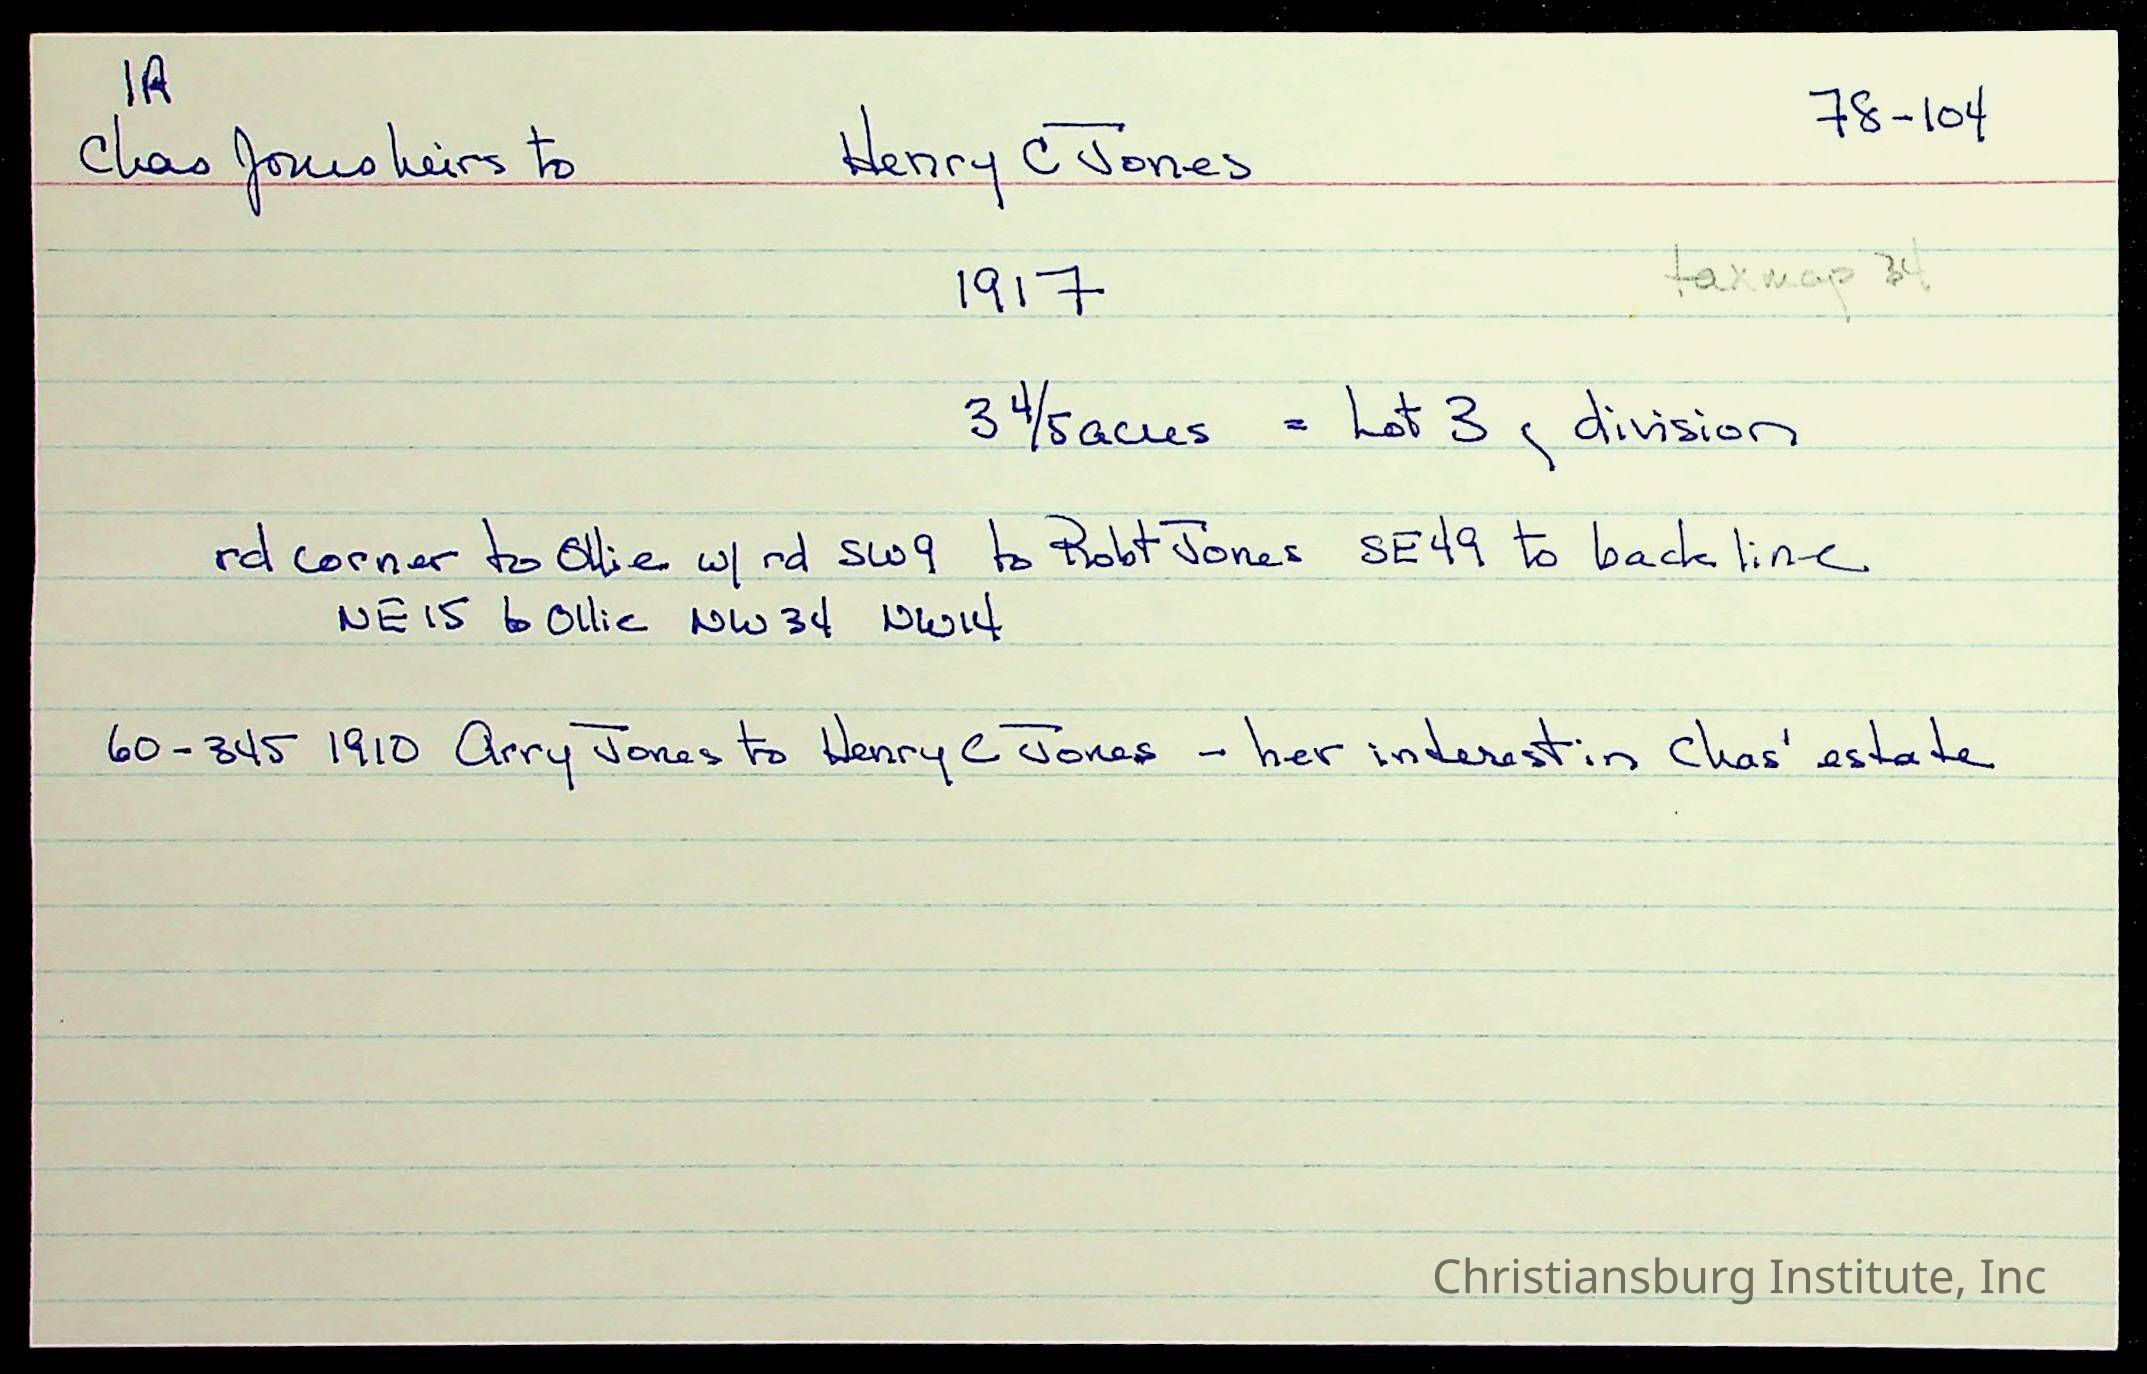 1A
78-104
Chas Jones heirs to Henry C Jones
1917
taxmap 34
3 4/5 acres = Lot 3, division
rd corner to Ollie w/ rd SW9 to Robt Jones SE49 to back line
NE15 to Ollie NW34 NW14
60-345 1910 Arry Jones to Henry C Jones - her interest in Chas' estate
Christiansburg Institute, Inc